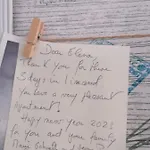 Dear Elena
Thank you for these
5 days in
you have a very pleasant
apartment!
Happy new year 2023
to you and your family